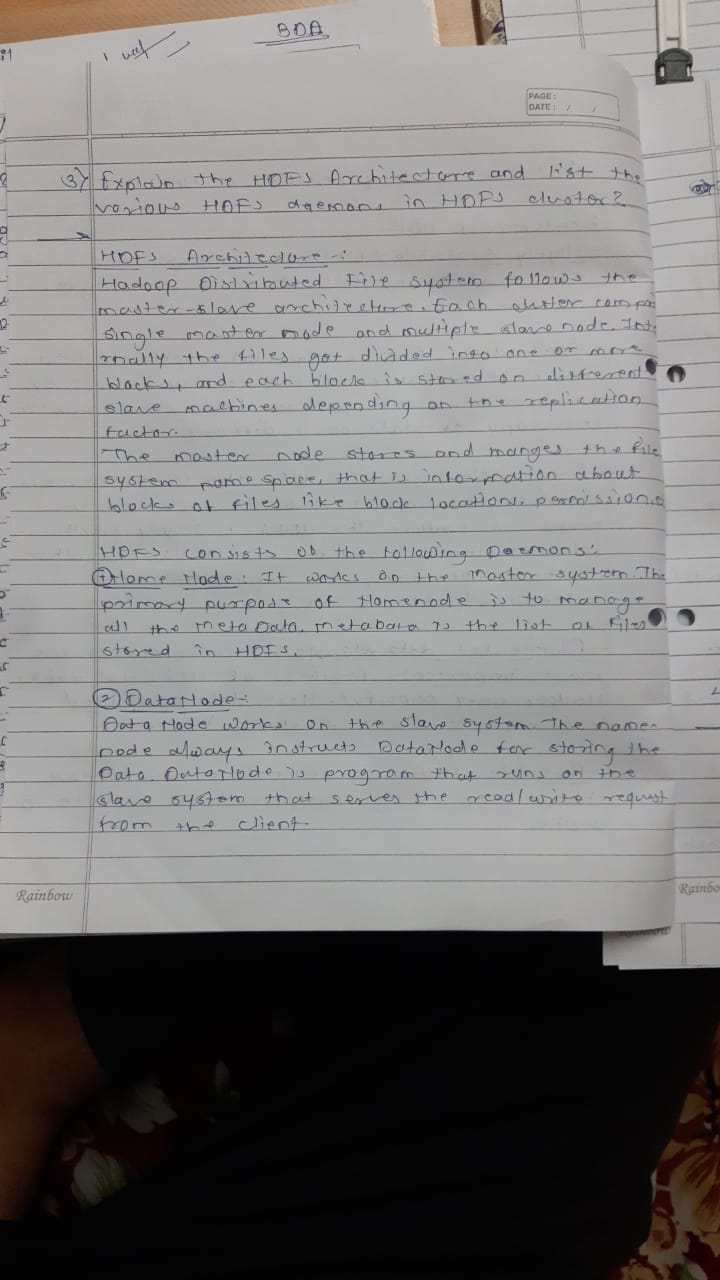 BDA
PAGE:
DATE: / /
3) Explain the HDFS Architecture and list the
various HDFS daemons in HDFS cluster?
HDFS Architecture -:
Hadoop Distributed File system follows the
master-slave architecture. Each cluster
single master node and multiple slave node. Int
rnally the files got divided into one or more
blocks, and each block is stored on different
slave machines depending on the replication
factor.
The master node stores and manges the file
system name space, that is information about
blocks of files like block locations, permissions
HDFS consists of the following Daemons:
① Name Node: It works on the master system. The
primary purpose of Namenode is to manage
all the MetaData. Metadata is the list of files
stored in HDFS.
② DataNode -:
Data Node works on the slave system. The name-
node always instructs DataNode for storing the
Data. DataNode is program that runs on the
slave system that serves the read/write request
from the client.
Rainbow
Rainbo